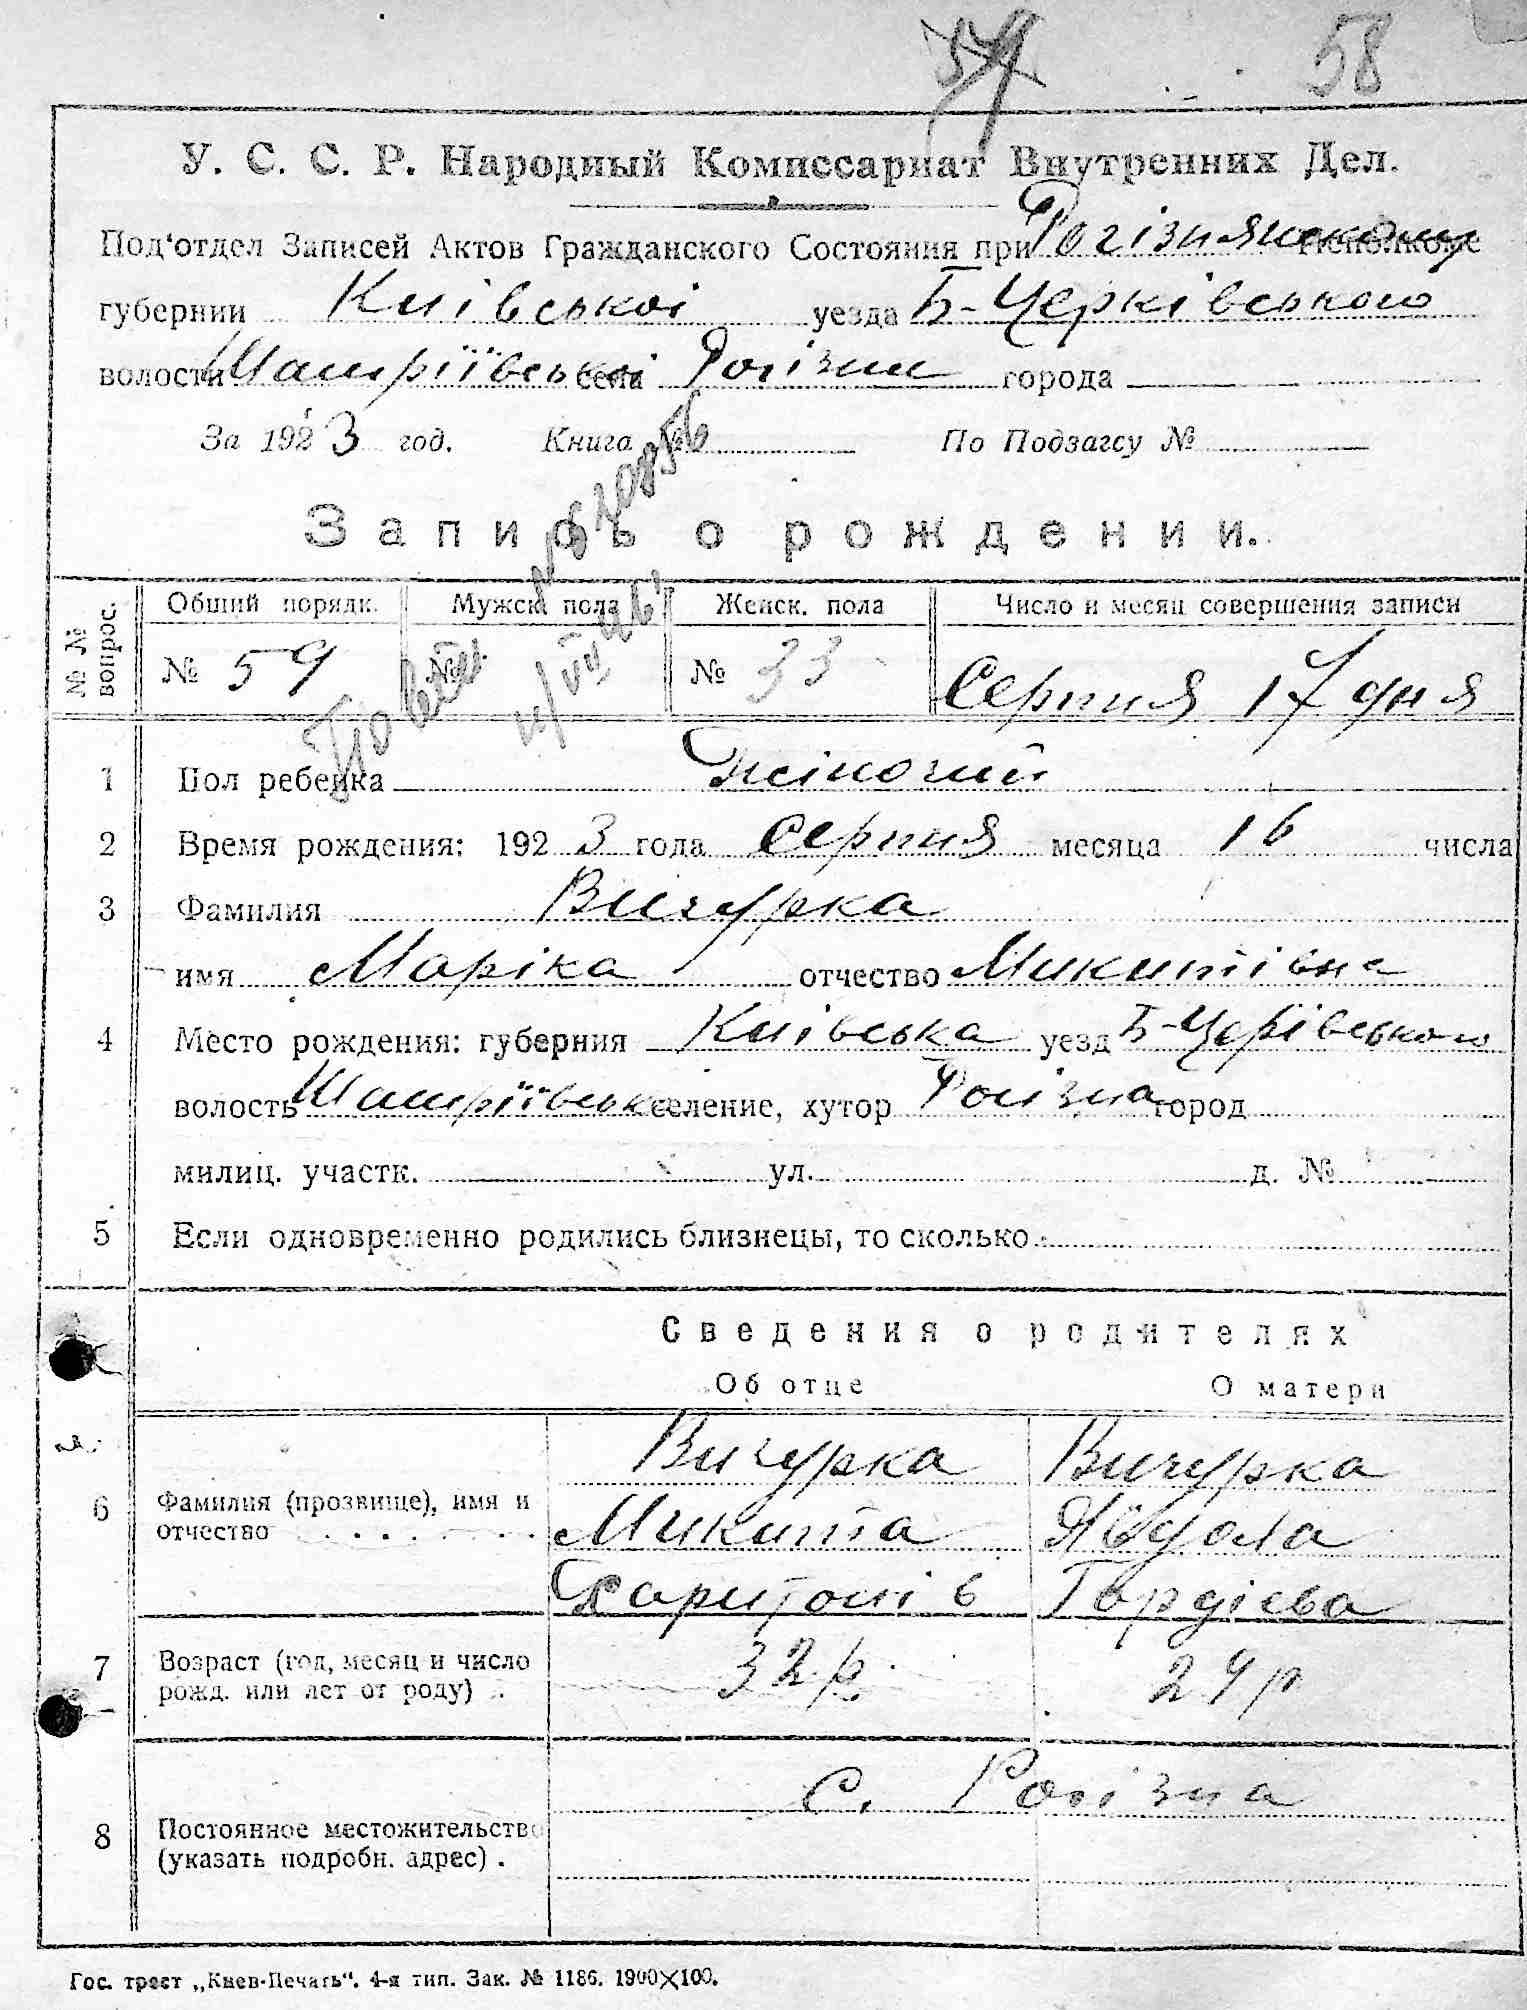 58
У. С. С. Р. Народный Комиссариат Внутренних Дел.
Под'отдел Записей Актов Гражданского Состояния при Рогізнянському Исполкоме
губернии Київської уезда Б-Церківського
волости села Рогізни города
За 1923 год. Книга № По Подзагсу №
Запись о рождении.
№ № вопрос. Общий порядк. Мужск. пола Женск. пола Число и месяц совершения записи
№ 59 № № 33 Серпня 17 дня
1 Пол ребенка Жіночий
2 Время рождения: 1923 года Серпня месяца 16 числа
3 Фамилия Вичурка
имя Маріка отчество Микитівна
4 Место рождения: губерния Київська уезд Б-Церківського
волость селение, хутор Рогізна город
милиц. участк. ул. д. №
5 Если одновременно родились близнецы, то сколько
Сведения о родителях
Об отце О матери
Вичурка Вичурка
6 Фамилия (прозвище), имя и отчество Микита Явдоха
Харитонів Гордієва
7 Возраст (год, месяц и число рожд. или лет от роду) 32 р. 29 р
С. Рогізна
8 Постоянное местожительство (указать подробн. адрес) .
Гос. трест „Киев-Печать“. 4-я тип. Зак. № 1186. 1900×100.